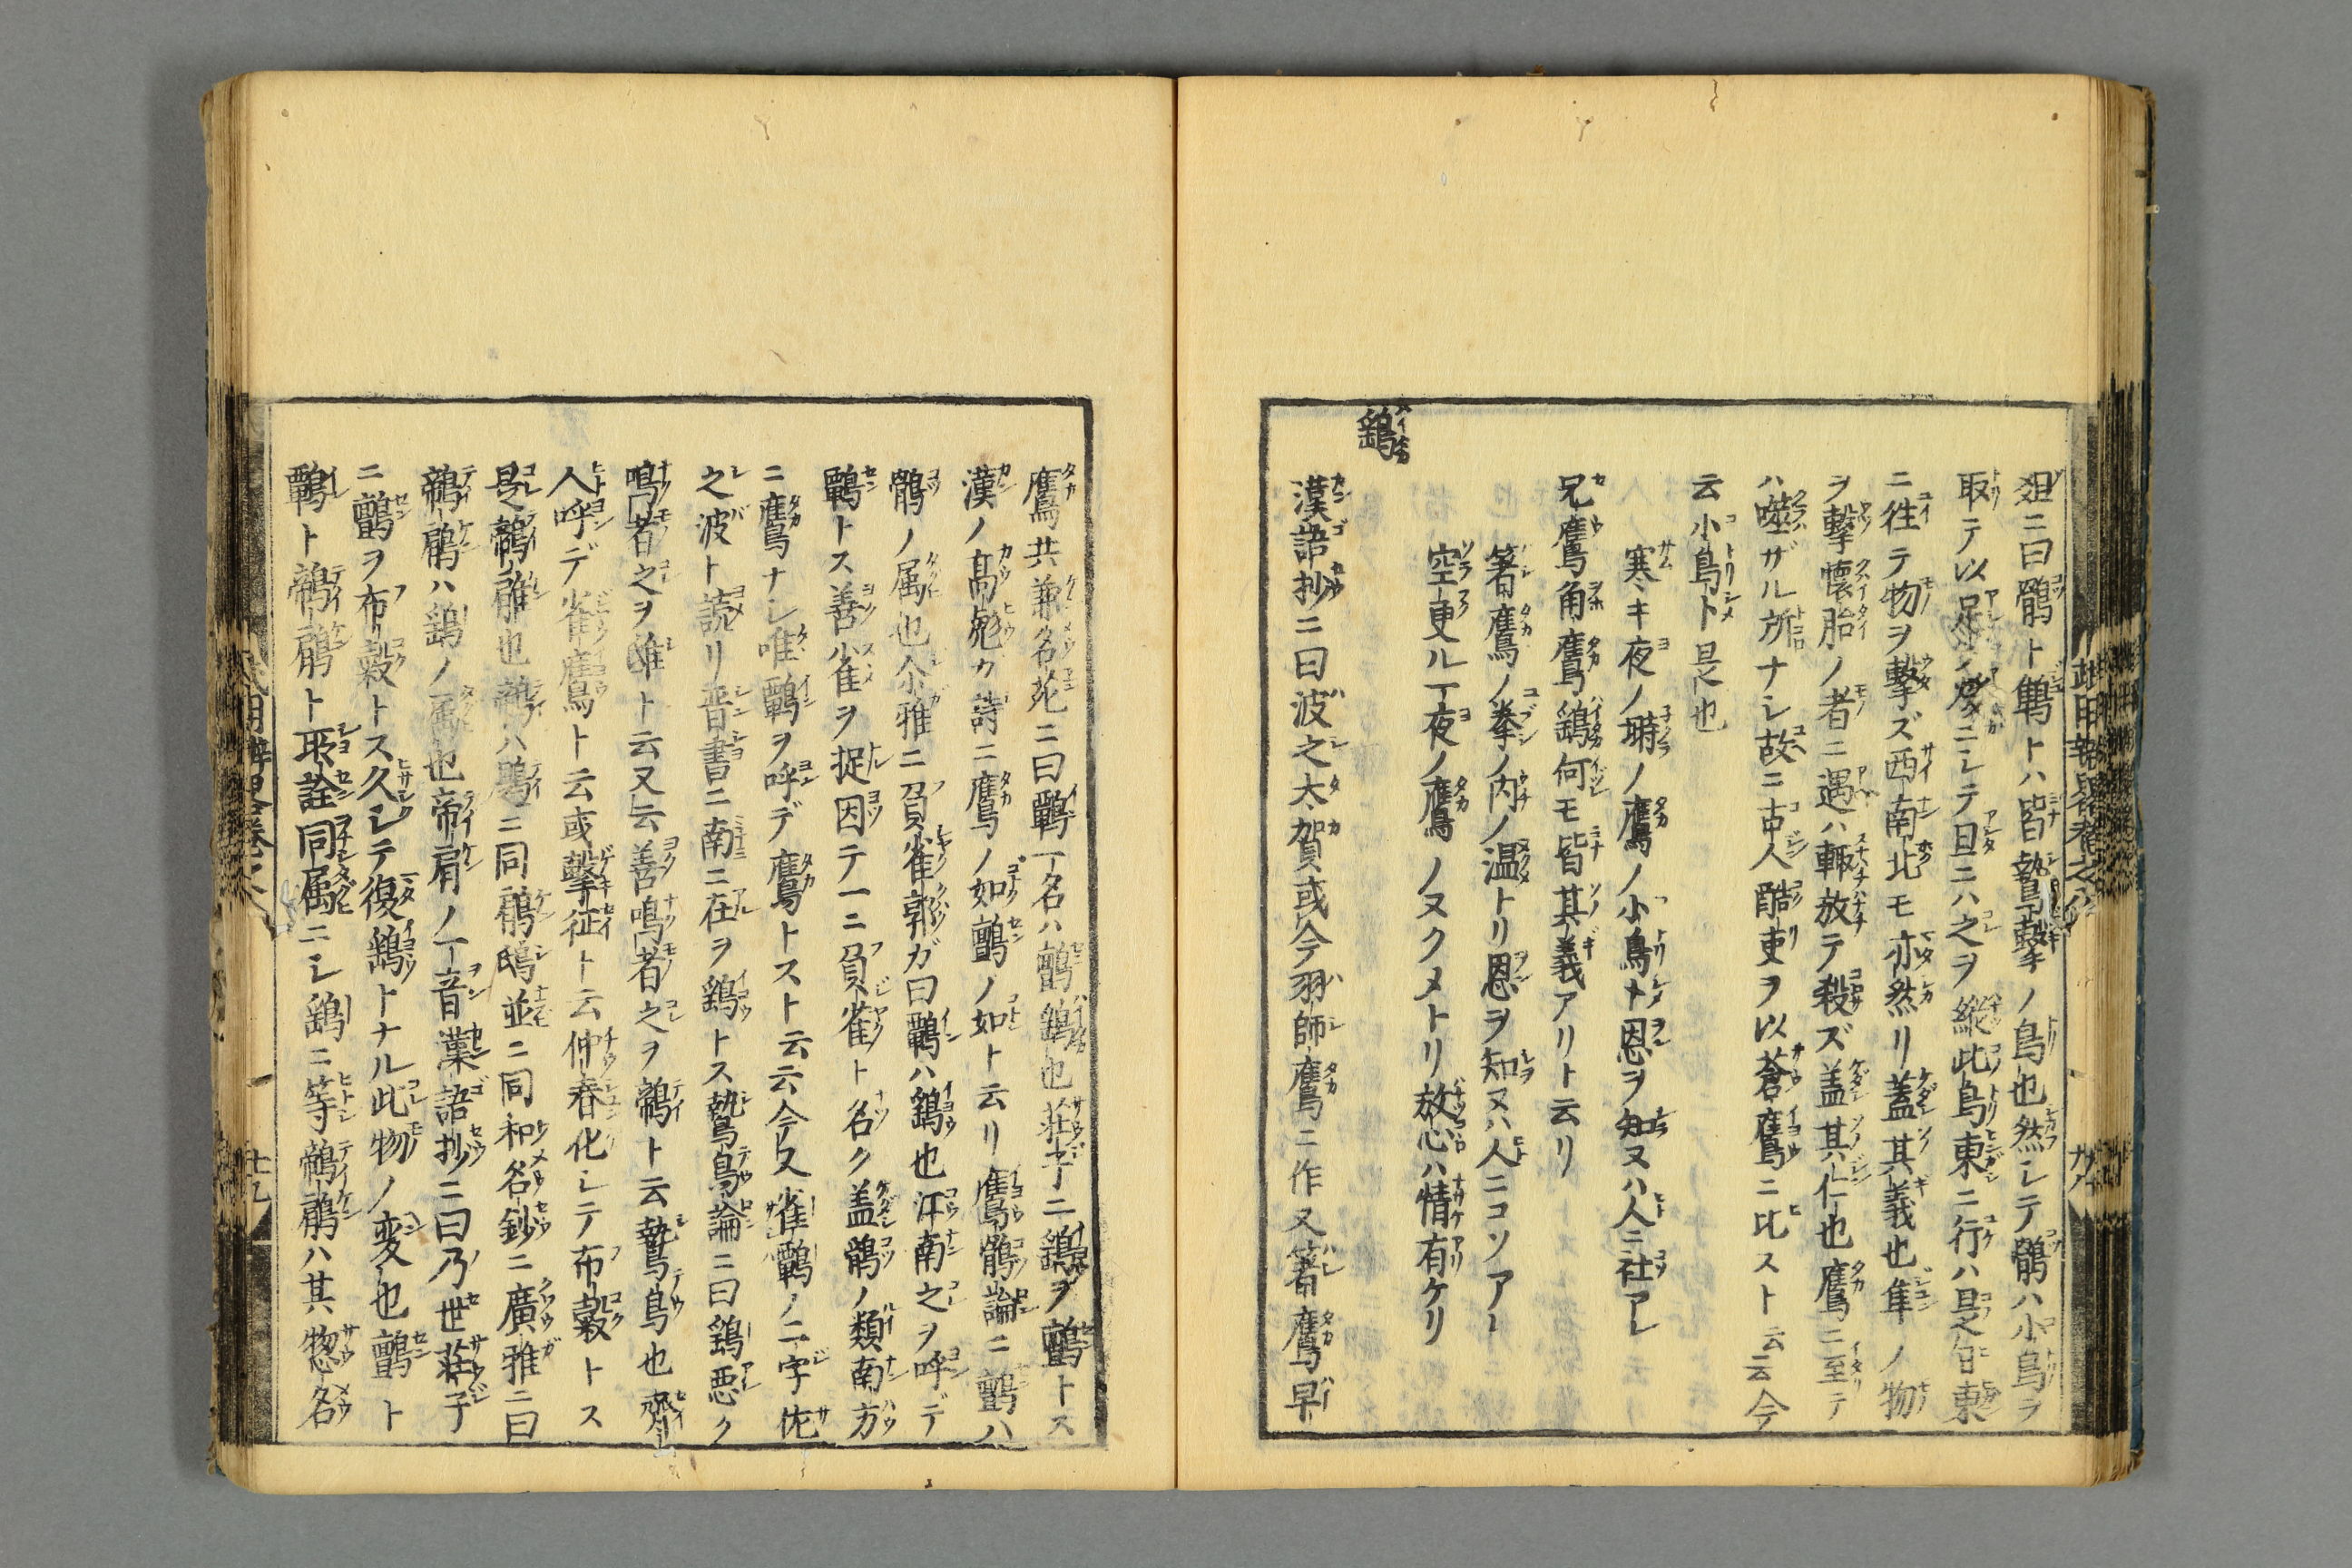 爼ニ曰鶻ト鶽トハ皆鷙撃ノ鳥也然レテ鶻ハ小鳥ヲ
取テ以足ヲ煖ニレテ旦ニハ之ヲ縦此鳥東ニ行ハ是旨東
ニ徃テ物ヲ撃ズ西南北モ亦然リ蓋其義也隼ノ物
ヲ撃懷胎ノ者ニ遇ハ輙放テ殺ズ盖其仁也鷹ニ至テ
ハ噬ザル所ナシ故ニ古人酷吏ヲ以蒼鷹ニ比スト云云今
云小鳥トハ是也
寒キ夜ノ塒ノ鷹ノ小鳥ナ恩ヲ知ヌハ人ニ社アレ
兄鷹角鷹鷂何モ皆其義アリト云リ
箸鷹ノ拳ノ内ノ温トリ恩ヲ知ヌハ人ニコソアー
空更ル一夜ノ鷹ノヌクメトリ放心ハ情有ケリ
鷂
漢語抄ニ曰波之太賀或今羽師鷹ニ作又箸鷹早
鷹共兼名苑ニ曰鸇一名ハ鸇鷂也莊子ニ鷂ヲ鸇トス
漢ノ高彪ク詩ニ鷹ノ如鸇ノ如ト云リ鷹鶻論ニ鸇ハ
鶻ノ属也尒雅ニ負雀郭ガ曰鸇ハ鷂也江南之ヲ呼デ
鸇トス善小雀ヲ捉因テ一ニ負雀ト名ク盖鶻ノ類南方
ニ鷹ナシ唯鸇ヲ呼デ鷹トスト云云今又雀鸇ノ二字佐
之波ト読リ晋書ニ南ニ在ヲ鷂トス鷙鳥論ニ曰鷂悪ク
鳴者之ヲ雖ト云又云善鳴者之ヲ鶙ト云鷙鳥也齊
人呼デ雀鷹ト云或撃征ト云仲春化シテ布穀トス
是鶙雃也鶙ハ鶗ニ同鵳鳽並ニ同和名鈔ニ廣雅ニ曰
鶙鵳ハ鷂ノ属也帝肩ノ一音漢語抄ニ曰乃世莊子
ニ鸇ヲ布穀トス久シテ復鷂トナル此物ノ変也鸇ト
鸇ト鶙鵳ト所詮同属ニシ鷂ニ等鶙鵳ハ其惣名